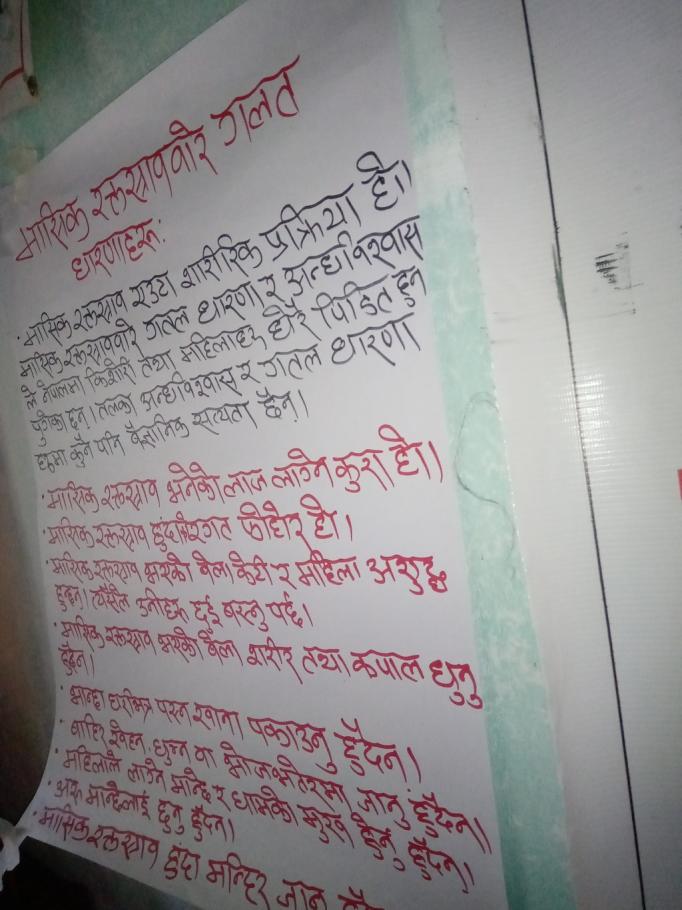 मासिक रक्तस्राव वारे गलत
धारणाहरू:
· मासिक रक्तस्राव एउटा शारीरिक प्रक्रिया हो।
मासिक रक्तस्राववारे गलत धारणा र अन्धविश्वास
ले नेपालमा किशोरी तथा महिलाहरू धेरै पिडित हुन
पुगेका छन्। तलका अन्धविश्वास र गलत धारणा
हरूमा कुनै पनि वैज्ञानिक सत्यता छैन।
· मासिक रक्तस्राव भनेको लाज लाग्ने कुरा हो।
· मासिक रक्तस्राव हुँदा रगत फोहोर हो।
· मासिक रक्तस्राव भएको वेला केटी र महिला अशुद्ध
हुन्छन्। त्यसैले उनीहरू छुई बस्नु पर्छ।
· मासिक रक्तस्राव भएको वेला शरीर तथा कपाल धुनु
हुँदैन।
· भान्छा पस्न खाना पकाउनु हुँदैन।
· बाहिर खेल्न, घुम्न वा भोजभतेरमा जानु हुँदैन।
· महिलाले लोग्ने मान्छे र घामको मुख हेर्नु हुँदैन।
· अरू मान्छेलाई छुनु हुँदैन।
· मासिक रक्तस्राव हुँदा मन्दिर जान